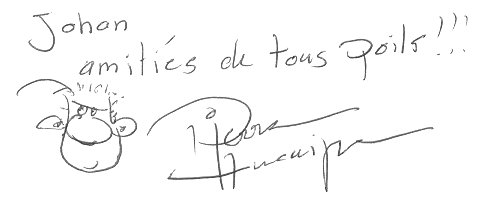 Johan
amitiés de tous poils!!!
Pierre